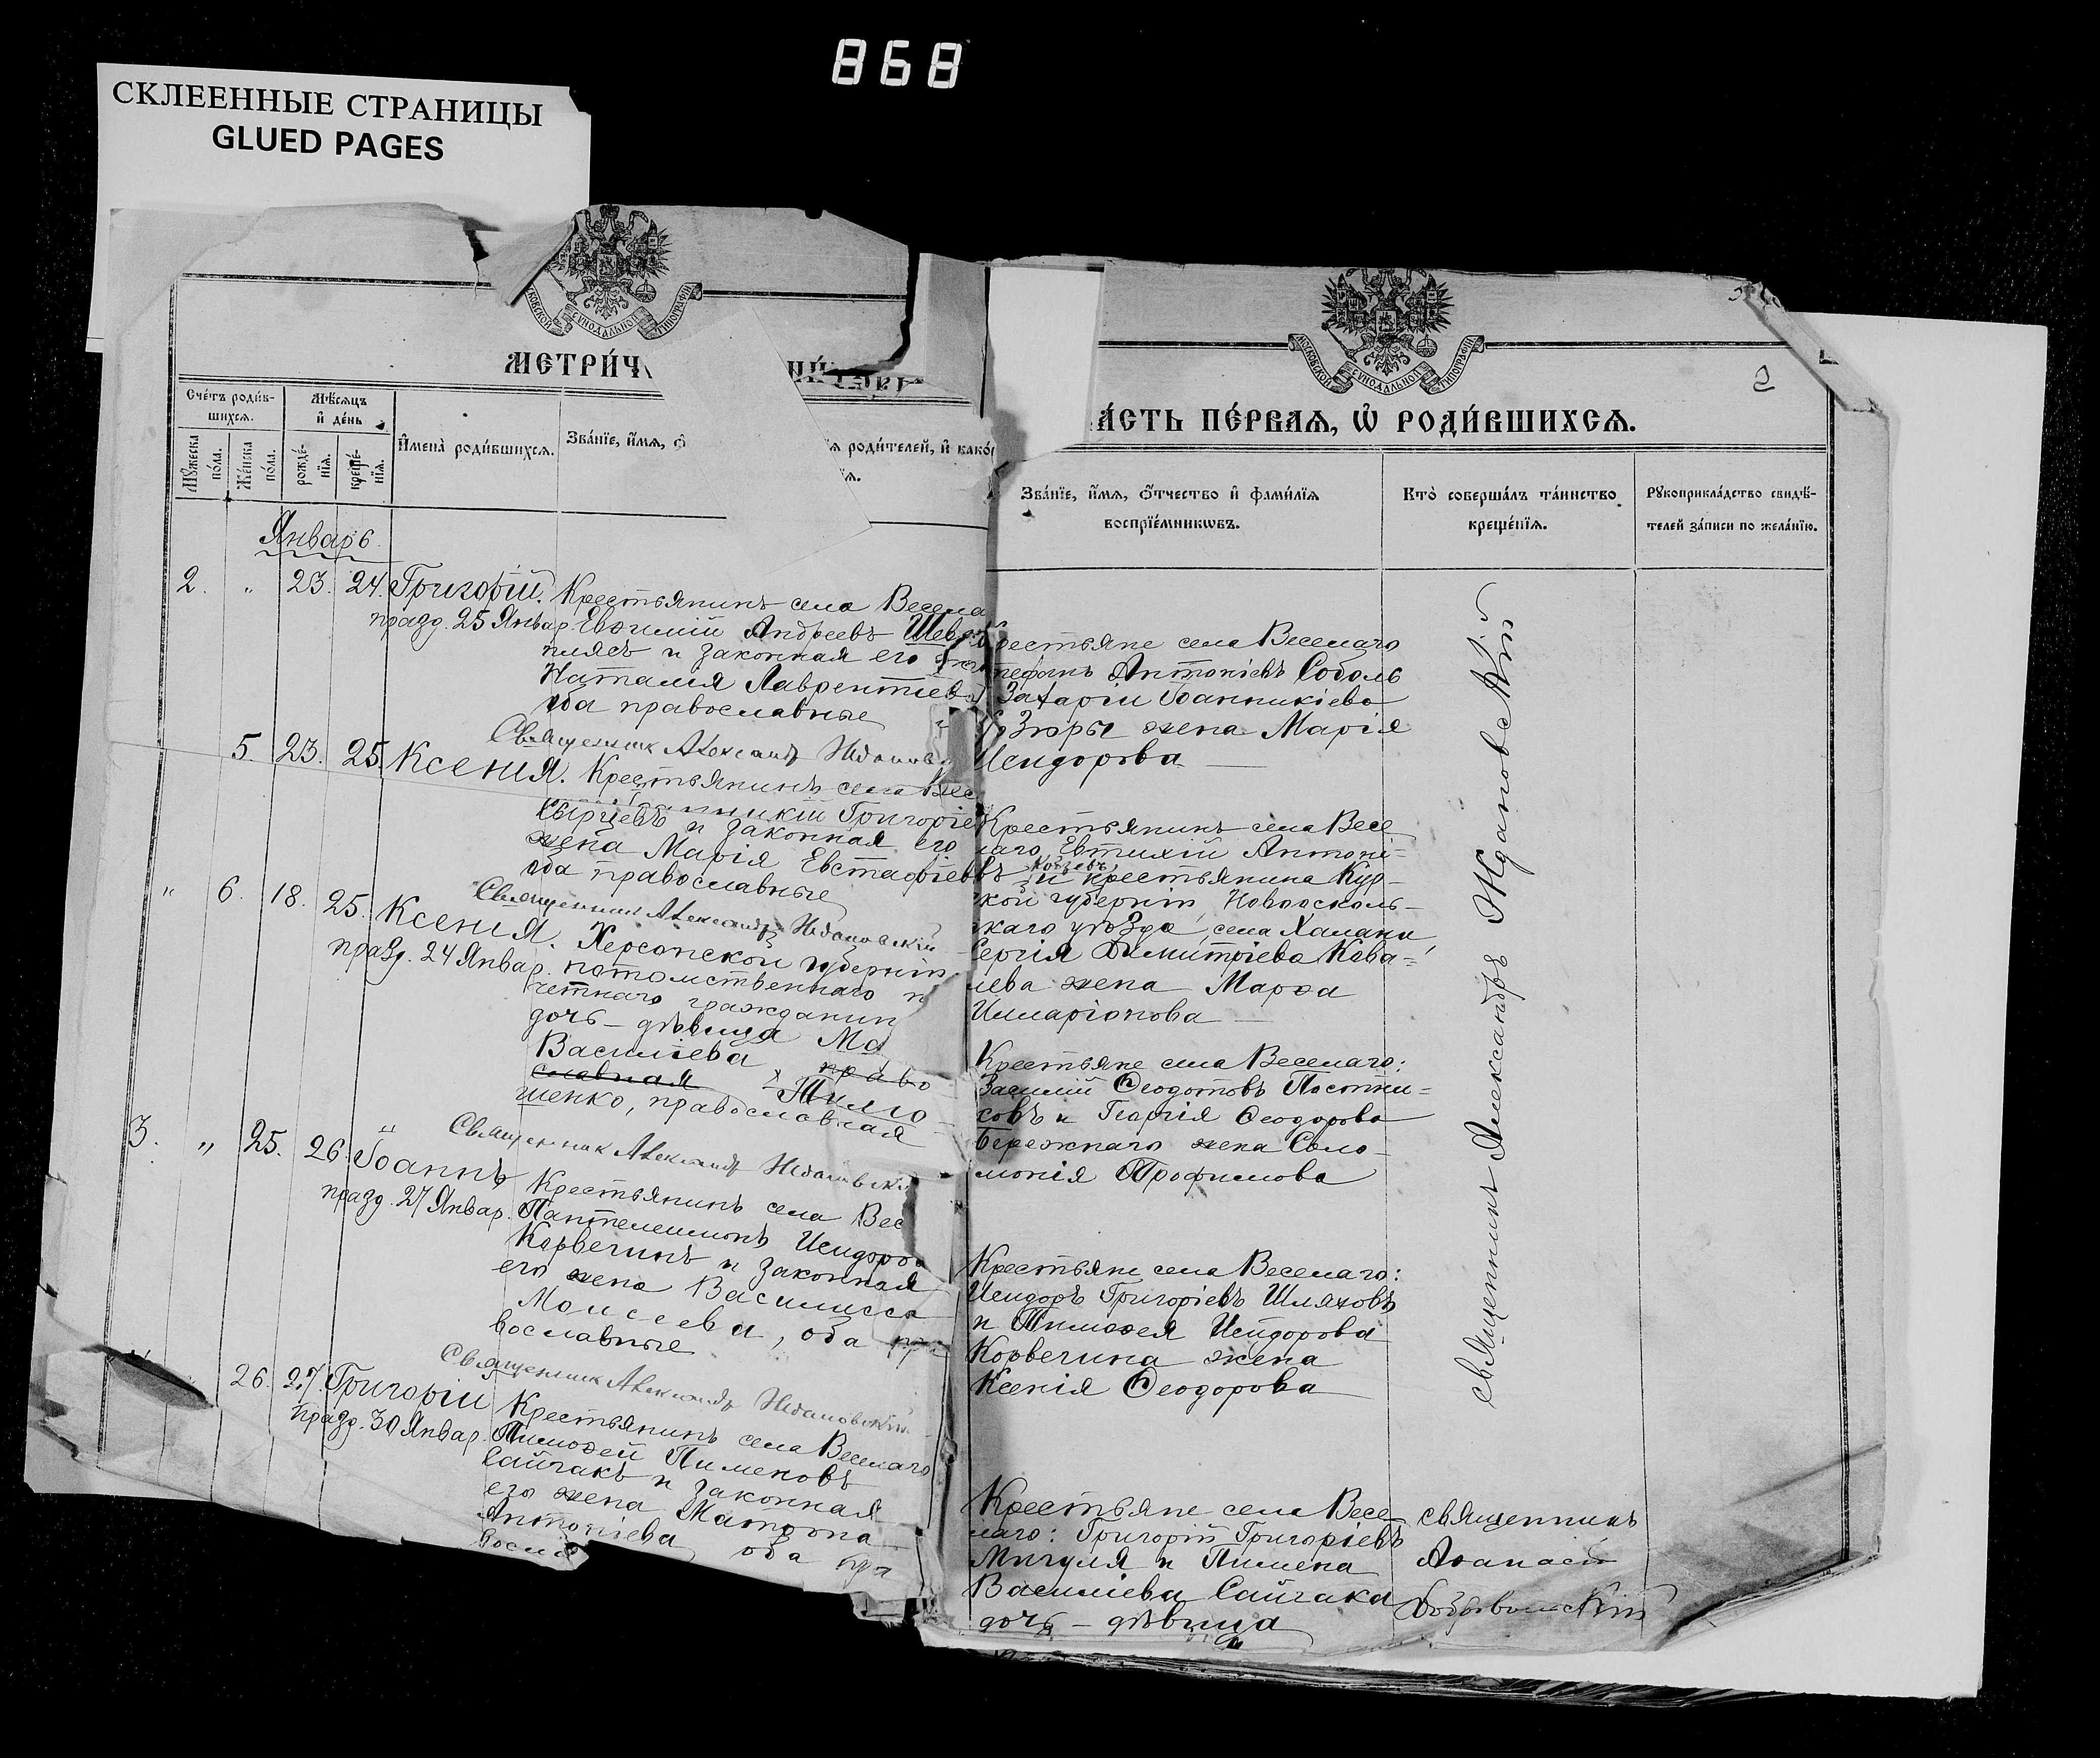 868
СКЛЕЕННЫЕ СТРАНИЦЫ
GLUED PAGES
МОСКОВСКОЙ СѴНОДАЛЬНОЙ ТИПОГРАФІИ
МЕТРИ́Ч
Сче́тъ роди́в-
шихсѧ.
Мѣ́сѧцъ
и҆ де́нь
Мꙋ́жеска по́ла.
Же́нска по́ла.
рожде́-нїѧ.
креще́-нїѧ.
И҆мена̀ роди́вшихсѧ.
Зва́нїе, и҆́мѧ, ѻ҆
ѧ роди́телей, и҆ како́
їѧ.
Январь
2. " 23. 24. Григорій. Крестьянинъ села Весела
празд. 25 Январ. Евѳимій Андреевъ Шев
плясъ и законная его
Наталія Лаврентіев
оба православные
Священник Александр Ждановс
5. 23. 25. Ксенія. Крестьянинъ села Вес
Григоріе
Сырцевъ и законная его
жена Марія Евстафіев
оба православные
Священник Александр Ждановскій
" 6. 18. 25. Ксенія. Херсонской губерніи
празд. 24 Январ. потомственнаго п
четнаго гражданин
дочь – дѣвица Ма
Василіева право
славная Тимо
шенко, православная
Священник Александр Ждановскій
3. " 25. 26. Іоаннъ Крестьянинъ села Вес
празд. 27 Январ. Пантелеимонъ Исидоров
Корвегинъ и законная
его жена Василисса
Моисеева, оба пр
вославные
Священник Александр Ждановскій
26. 27. Григорій Крестьянинъ села Веселаго
празд. 30 Январ. Тимоѳей Пименовъ
Сайгакъ и законная
его жена Матрона
Антоніева оба пра
восла
МОСКОВСКОЙ СѴНОДАЛЬНОЙ ТИПОГРАФІИ
2
А́СТЬ ПЕ́РВАѦ, Ѽ РОДИ́ВШИХСѦ.
Зва́нїе, и҆́мѧ, ѻ҆́тчество и҆ фами́лїѧ
воспрїе́мникѡвъ.
Кто̀ соверша́лъ та́инство
креще́нїѧ.
Рꙋкоприкла́дство свидѣ́-
телей за́писи по жела́нїю.
рестьяне села Веселаго
тефанъ Антоніевъ Соболь
Захаріи Іоанникіева
Зюры жена Марія
Исидорова
Крестьянинъ села Весе
лаго Евтихій Антоні-
евъ Ковзевъ и крестьянина Кур-
ской губерніи Новоосколь-
скаго уѣзда, села Халани,
Сергія Димитріева Кова-
лева жена Марѳа
Илларіонова
Крестьяне села Веселаго:
Василій Ѳеодотовъ Постни-
ковъ и Георгія Ѳеодорова
Бережнаго жена Соло-
монія Трофимова
Крестьяне села Веселаго:
Исидоръ Григоріевъ Шляховъ
и Тимоѳея Исидорова
Корвегина жена
Ксенія Ѳеодорова
Крестьяне села Весе
лаго: Григорій Григоріевъ
Мигуля и Пимена
Василіева Сайгака
дочь – дѣвица
священникъ Александръ Ждановскій
священникъ
Аѳанасій